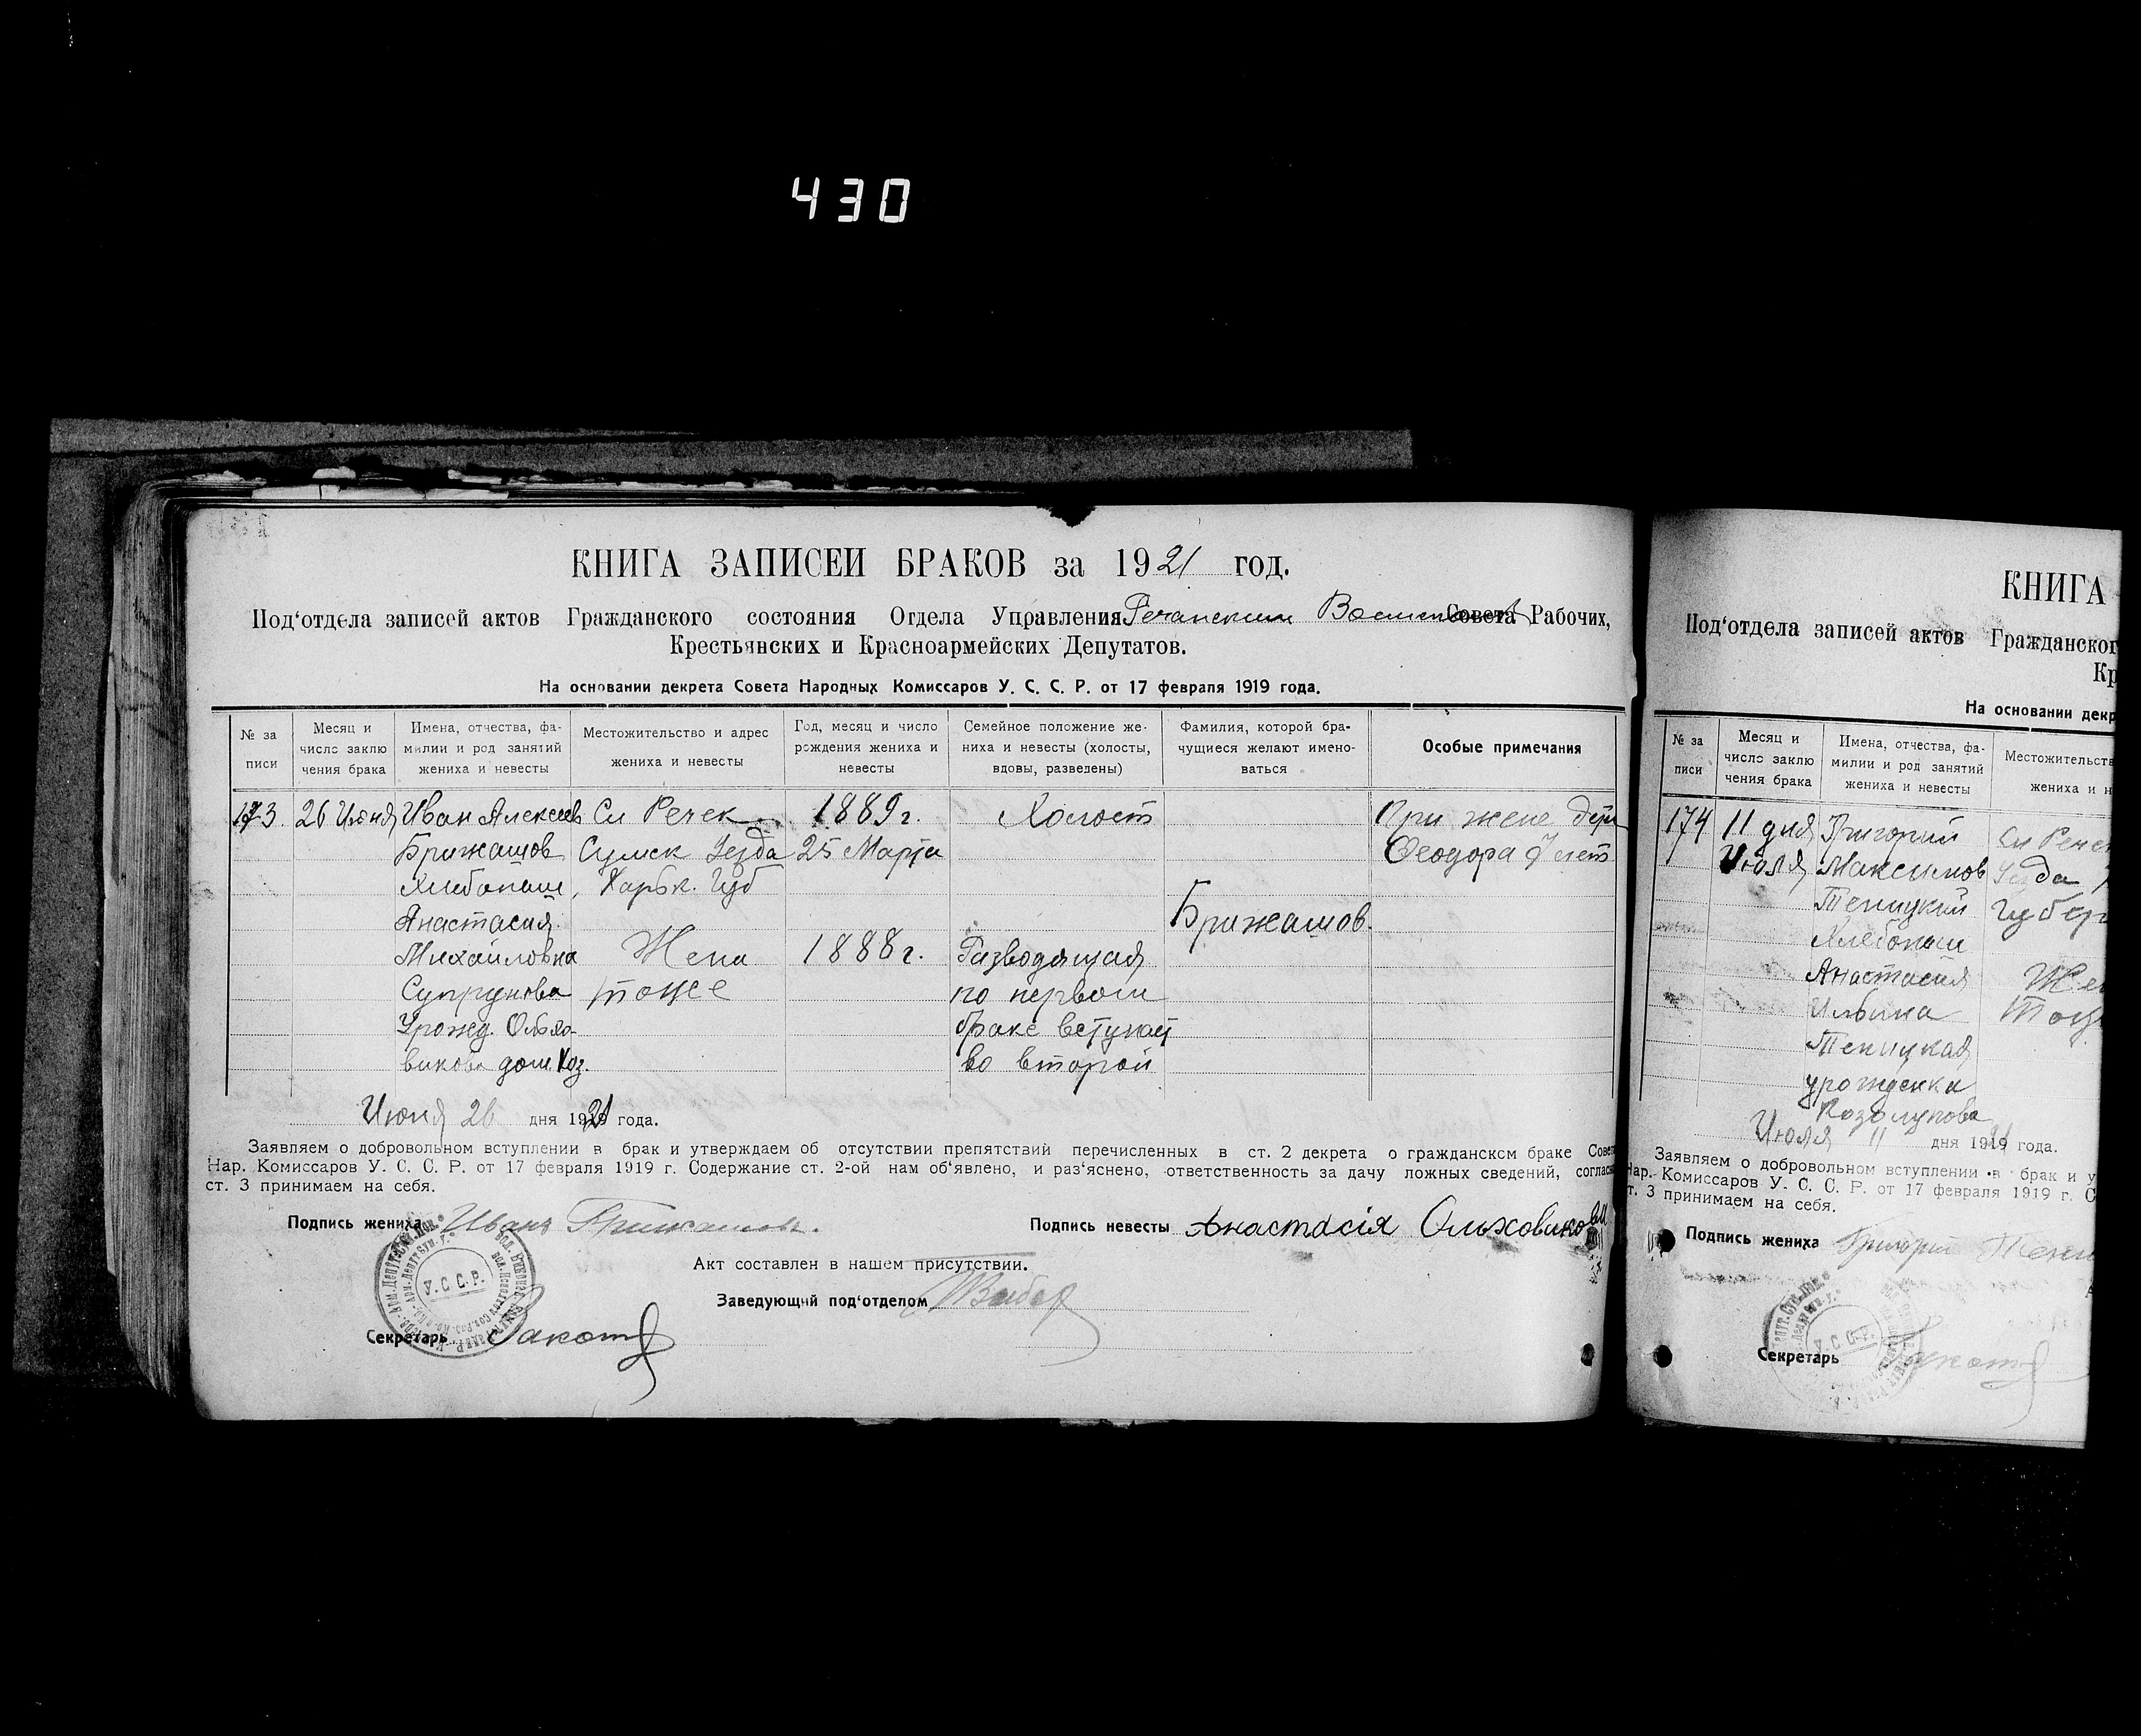 430
КНИГА ЗАПИСЕЙ БРАКОВ за 1921 год.
Под‘отдела записей актов Гражданского состояния Отдела Управления Речанским Совета Рабочих,
Крестьянских и Красноармейских Депутатов.
На основании декрета Совета Народных Комиссаров У. С. С. Р. от 17 февраля 1919 года.
№ за писи
Месяц и число заклю чения брака
Имена, отчества, фа- милии и род занятий жениха и невесты
Местожительство и адрес жениха и невесты
Год, месяц и число рождения жениха и невесты
Семейное положение же- ниха и невесты (холосты, вдовы, разведены)
Фамилия, которой бра- чущиеся желают имено- ваться
Особые примечания
173. 26 Июня Иван Алексеев Сл Речек 1889 г. Холост При жене
Брижашов Сумск Уезда 25 Марта Феодора 7 лет
Хлебопаш, Харьк. Губ
Анастасия Брижашов.
Михайловна Жена 1888 г. Разводящая
Супрунова тоже по первом
Урожд. Ольхо- браке вступает
викова дом. хоз. во второй
Июня 26 дня 1921 года.
Заявляем о добровольном вступлении в брак и утверждаем об отсутствии препятствий перечисленных в ст. 2 декрета о гражданском браке Совет
Нар. Комиссаров У. С. С. Р. от 17 февраля 1919 г. Содержание ст. 2-ой нам об‘явлено, и раз‘яснено, ответственность за дачу ложных сведений, соглас
ст. 3 принимаем на себя.
Подпись жениха Иванъ Брижашовъ.
Подпись невесты Анастасія Ольховикова
Акт составлен в нашем присутствии.
Заведующий под‘отделом
Секретарь
У.С.С.Р.
КНИГА
Под‘отдела записей актов Гражданског
Кр
На основании декр
№ за писи
Месяц и число заклю чения брака
Имена, отчества, фа- милии и род занятий жениха и невесты
Местожительств жениха и н
174 11 дня Григорий Сл Речек
Июля Максимов Уезда
Теницкий Губер
Хлебопаш
Анастасия Же
Ильина Тож
Теницкая
урожденка
Козолупова
Июля 11 дня 1921 года.
Заявляем о добровольном вступлении в брак и у
Нар. Комиссаров У. С. С. Р. от 17 февраля 1919 г. С
ст. 3 принимаем на себя.
Подпись жениха Григорий
Секретарь
У.С.С.Р.